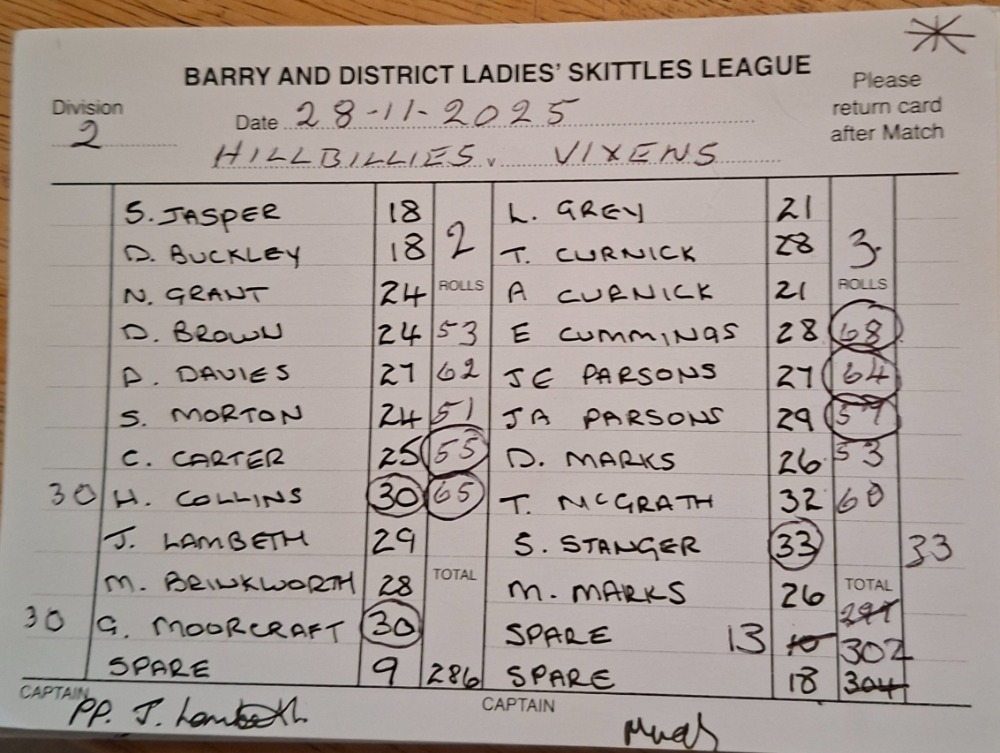 BARRY AND DISTRICT LADIES' SKITTLES LEAGUE
Please return card after Match
Division 2
Date 28-11-2025
HILLBILLIES v VIXENS
S. JASPER 18 L. GREY 21
D. BUCKLEY 18 2 T. CURNICK 28 3
N. GRANT 24 ROLLS A CURNICK 21 ROLLS
D. BROWN 24 53 E CUMMINGS 28 68
D. DAVIES 27 62 JE PARSONS 27 64
S. MORTON 24 51 JA PARSONS 29 57
C. CARTER 25 55 D. MARKS 26 53
30 H. COLLINS 30 65 T. McGRATH 32 60
J. LAMBETH 29 S. STANGER 33 33
M. BRINKWORTH 28 TOTAL M. MARKS 26 TOTAL
30 G. MOORCRAFT 30 SPARE 13 10 297 302
SPARE 9 286 SPARE 18 304
CAPTAIN PP. J. Lambeth CAPTAIN